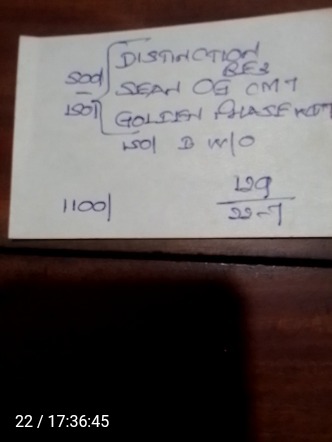 DISTINCTION
RES
500/ SEAN OG CMT
150/ GOLDEN PHASE
150/ D W/O
1100/ 129
22-7
22 / 17:36:45